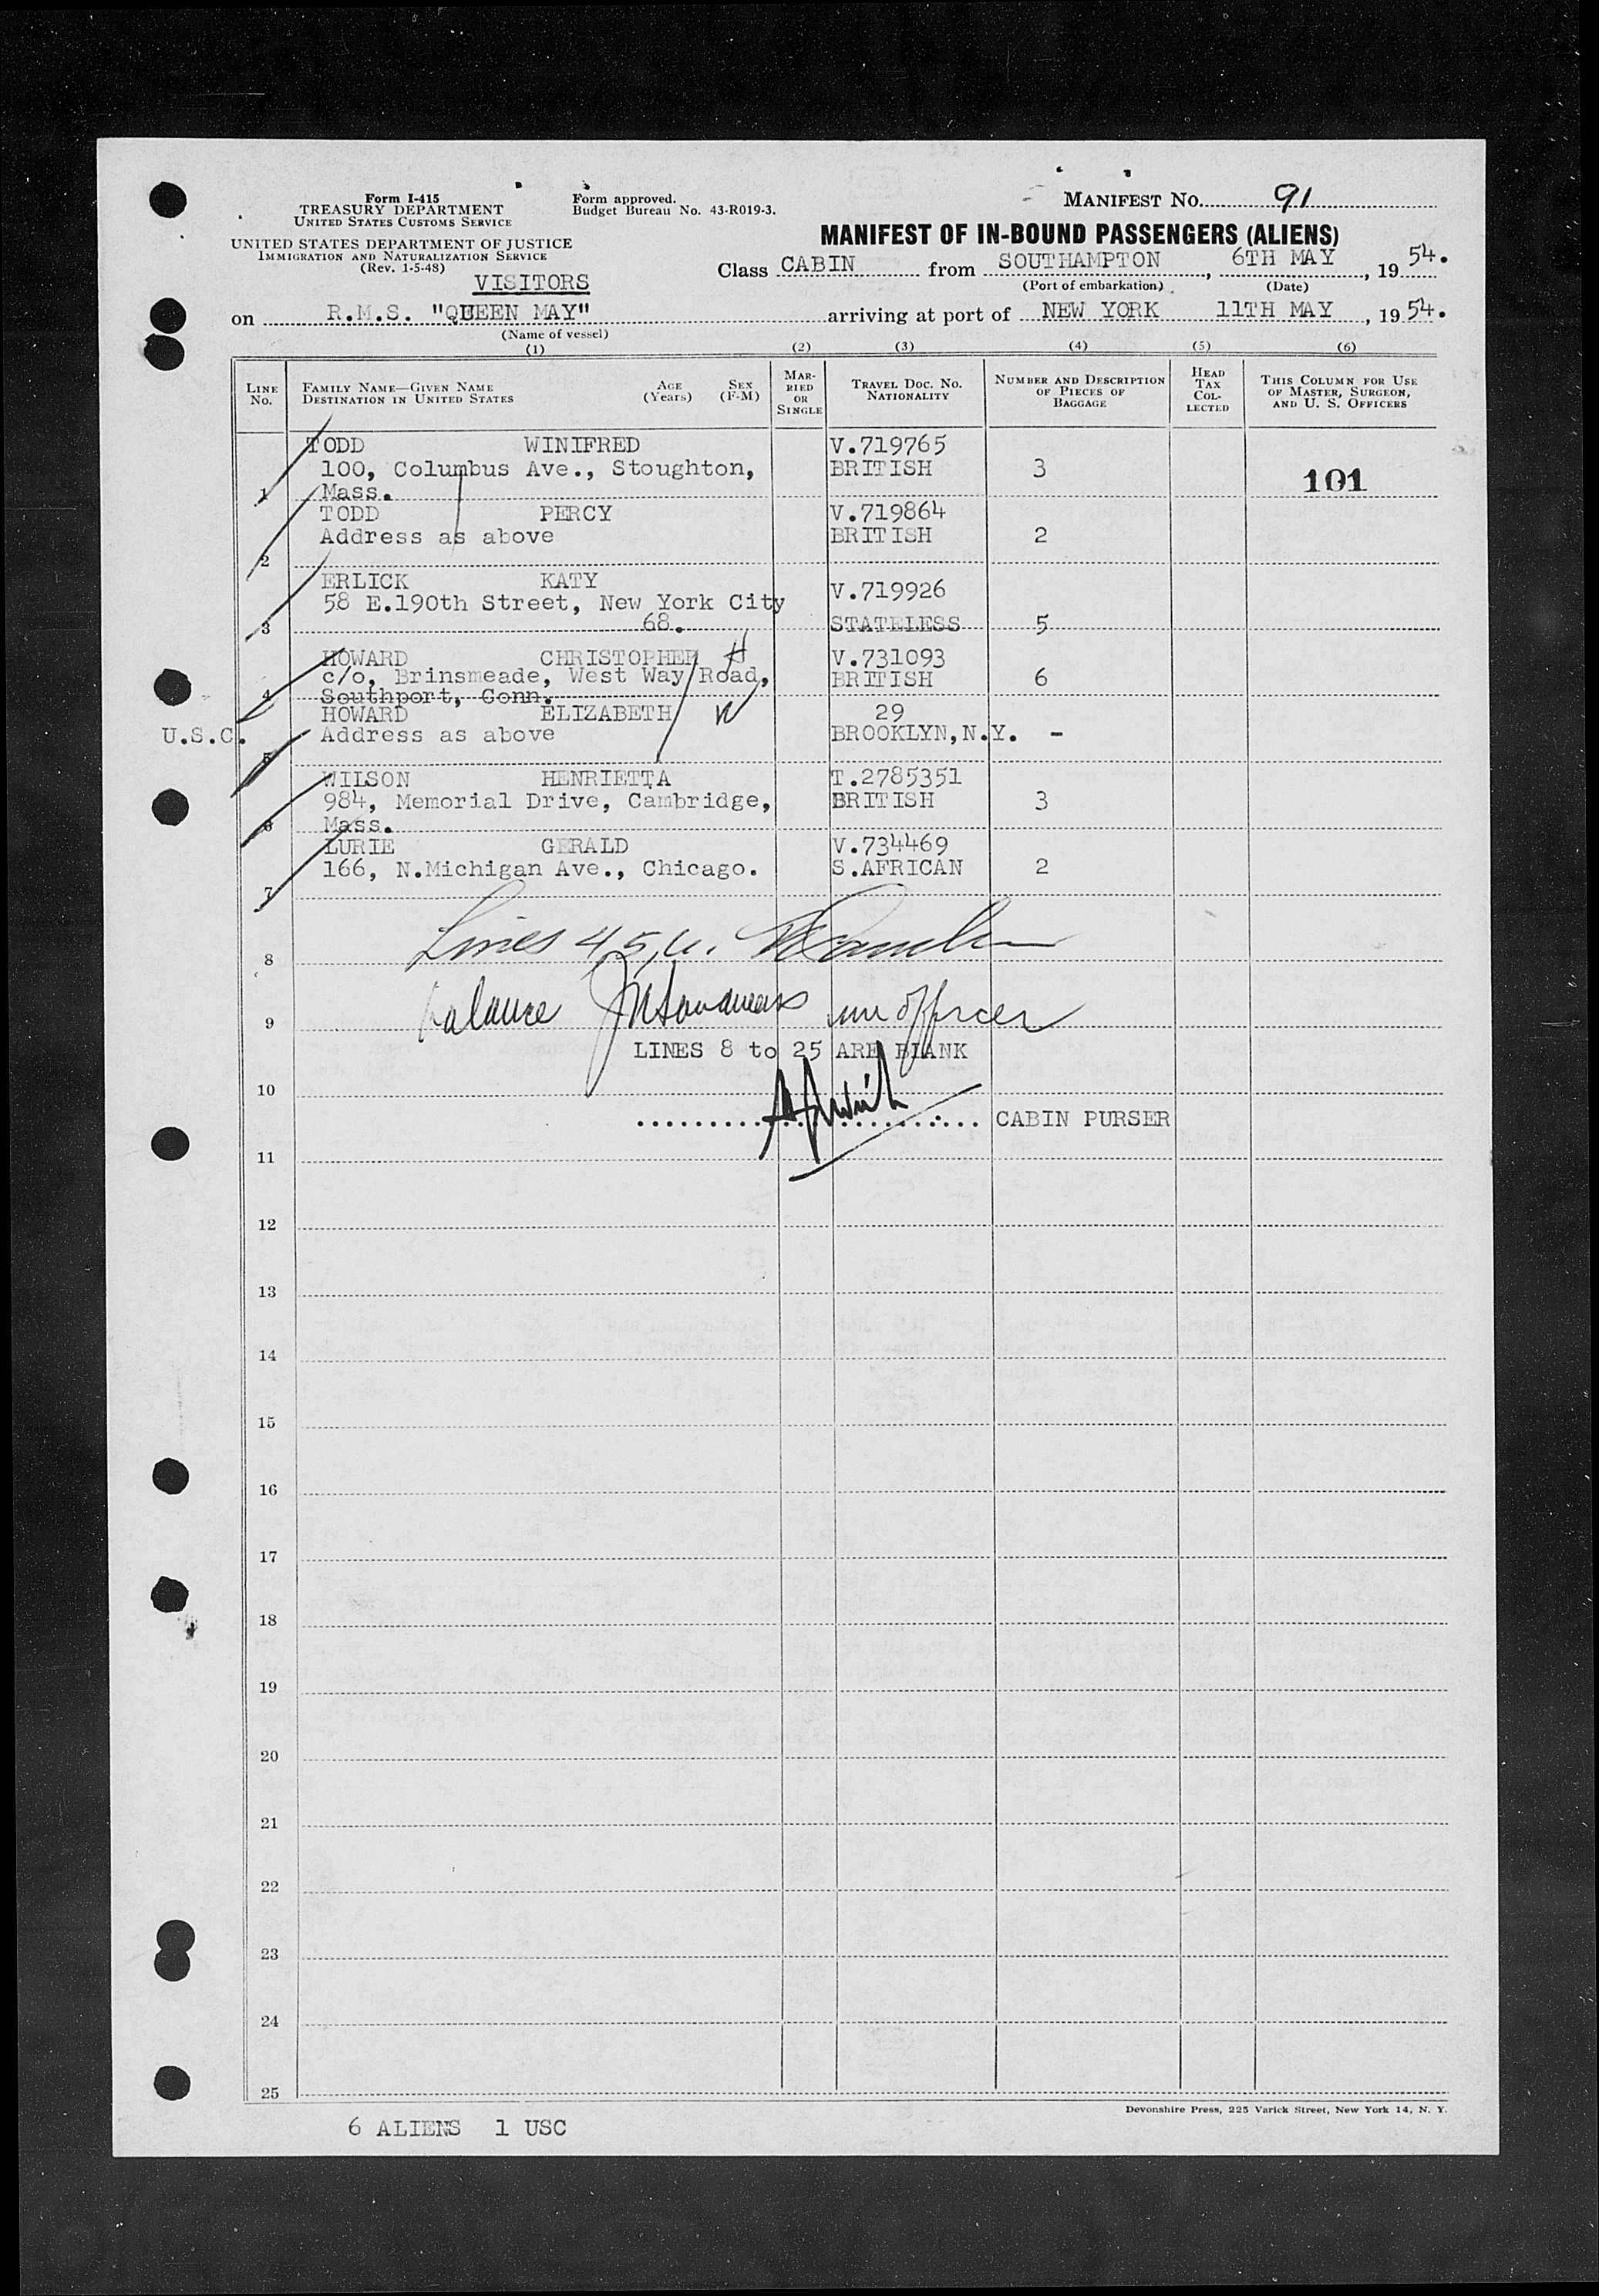 Form I-415
TREASURY DEPARTMENT
UNITED STATES CUSTOMS SERVICE
UNITED STATES DEPARTMENT OF JUSTICE
IMMIGRATION AND NATURALIZATION SERVICE
(Rev. 1-5-48)
Form approved.
Budget Bureau No. 43-R019-3.
MANIFEST NO. 91
MANIFEST OF IN-BOUND PASSENGERS (ALIENS)
VISITORS
Class CABIN from SOUTHAMPTON, 6TH MAY, 19 54.
(Port of embarkation) (Date)
on R.M.S. "QUEEN MAY" arriving at port of NEW YORK 11TH MAY, 19 54.
(Name of vessel)
(1) (2) (3) (4) (5) (6)
LINE NO.
FAMILY NAME—GIVEN NAME
DESTINATION IN UNITED STATES
AGE (Years)
SEX (F-M)
MARRIED OR SINGLE
TRAVEL DOC. NO.
NATIONALITY
NUMBER AND DESCRIPTION OF PIECES OF BAGGAGE
HEAD TAX COLLECTED
THIS COLUMN FOR USE OF MASTER, SURGEON, AND U. S. OFFICERS
TODD WINIFRED V.719765
100, Columbus Ave., Stoughton, BRITISH 3 101
1 Mass.
TODD PERCY V.719864
Address as above BRITISH 2
2
ERLICK KATY V.719926
58 E.190th Street, New York City
3 68. STATELESS 5
HOWARD CHRISTOPHER H V.731093
c/o, Brinsmeade, West Way Road, BRITISH 6
4 Southport, Conn.
HOWARD ELIZABETH W 29
U.S.C. Address as above BROOKLYN, N.Y. -
5
WILSON HENRIETTA T.2785351
984, Memorial Drive, Cambridge, BRITISH 3
6 Mass.
LURIE GERALD V.734469
166, N.Michigan Ave., Chicago. S.AFRICAN 2
7
Lines 4,5,6.
8
balance officer
9
LINES 8 to 25 ARE BLANK
10
CABIN PURSER
11
12
13
14
15
16
17
18
19
20
21
22
23
24
25
Devonshire Press, 225 Varick Street, New York 14, N. Y.
6 ALIENS 1 USC